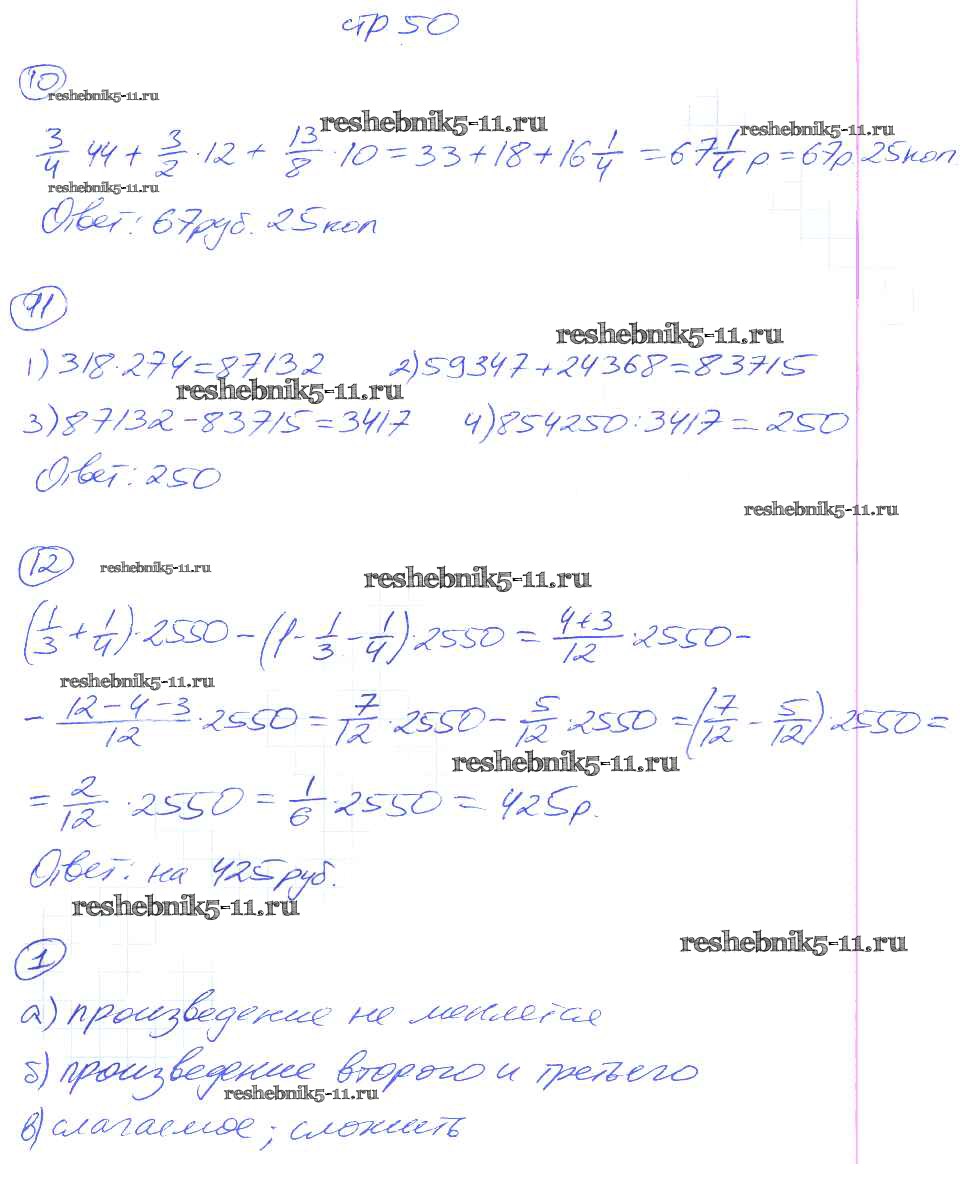 стр 50
10
reshebnik5-11.ru
reshebnik5-11.ru
reshebnik5-11.ru
3/4 44 + 3/2 · 12 + 13/8 · 10 = 33 + 18 + 16 1/4 = 67 1/4 р = 67р 25коп
reshebnik5-11.ru
Ответ: 67руб. 25коп
11
reshebnik5-11.ru
1) 318 · 274 = 87132 2) 59347 + 24368 = 83715
reshebnik5-11.ru
3) 87132 – 83715 = 3417 4) 854250 : 3417 = 250
Ответ: 250
reshebnik5-11.ru
12
reshebnik5-11.ru
reshebnik5-11.ru
(1/3 + 1/4) · 2550 – (1 - 1/3 - 1/4) · 2550 = 4+3/12 · 2550 –
reshebnik5-11.ru
– 12–4–3/12 · 2550 = 7/12 · 2550 – 5/12 · 2550 = (7/12 – 5/12) · 2550 =
reshebnik5-11.ru
= 2/12 · 2550 = 1/6 · 2550 = 425р.
Ответ: на 425руб.
reshebnik5-11.ru
reshebnik5-11.ru
1
а) произведение не меняется
б) произведение второго и третьего
reshebnik5-11.ru
в) слагаемое; сложить